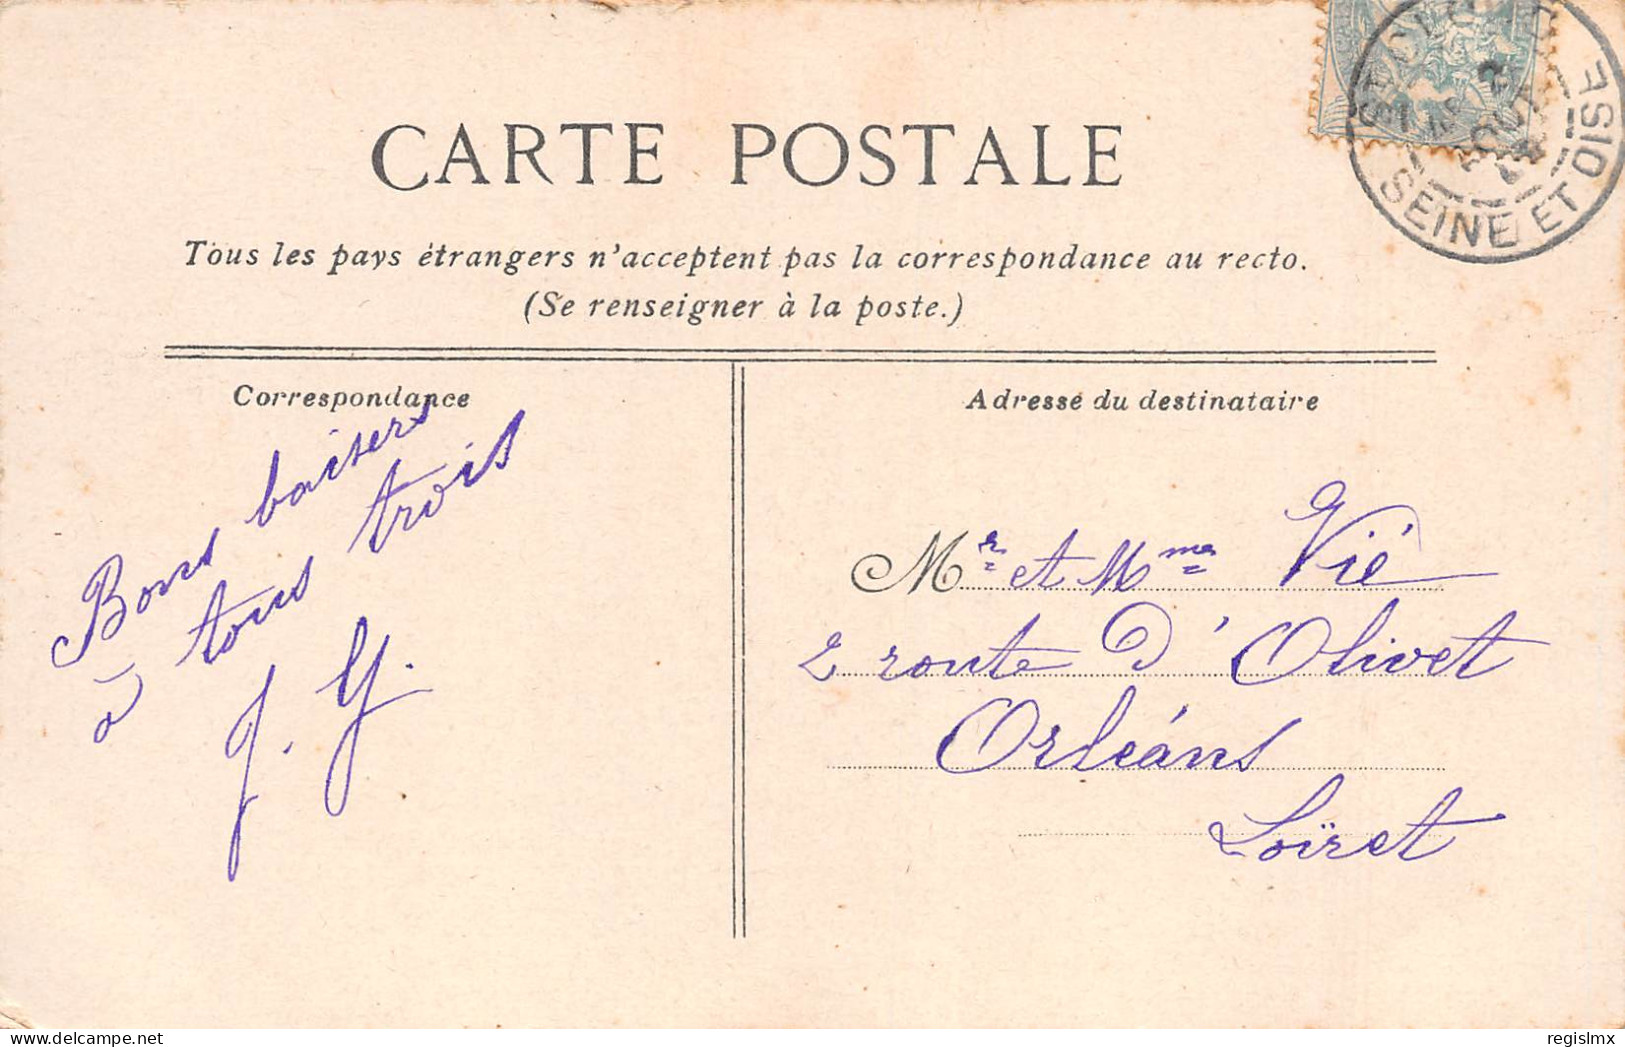 CARTE POSTALE
Tous les pays étrangers n'acceptent pas la correspondance au recto.
(Se renseigner à la poste.)
Correspondance
Bons baisers
à tous trois
J. G.
Adresse du destinataire
Mr et Mme Vié
2 route d'Olivet
Orléans
Loïret
SEINE ET OISE
regislmx